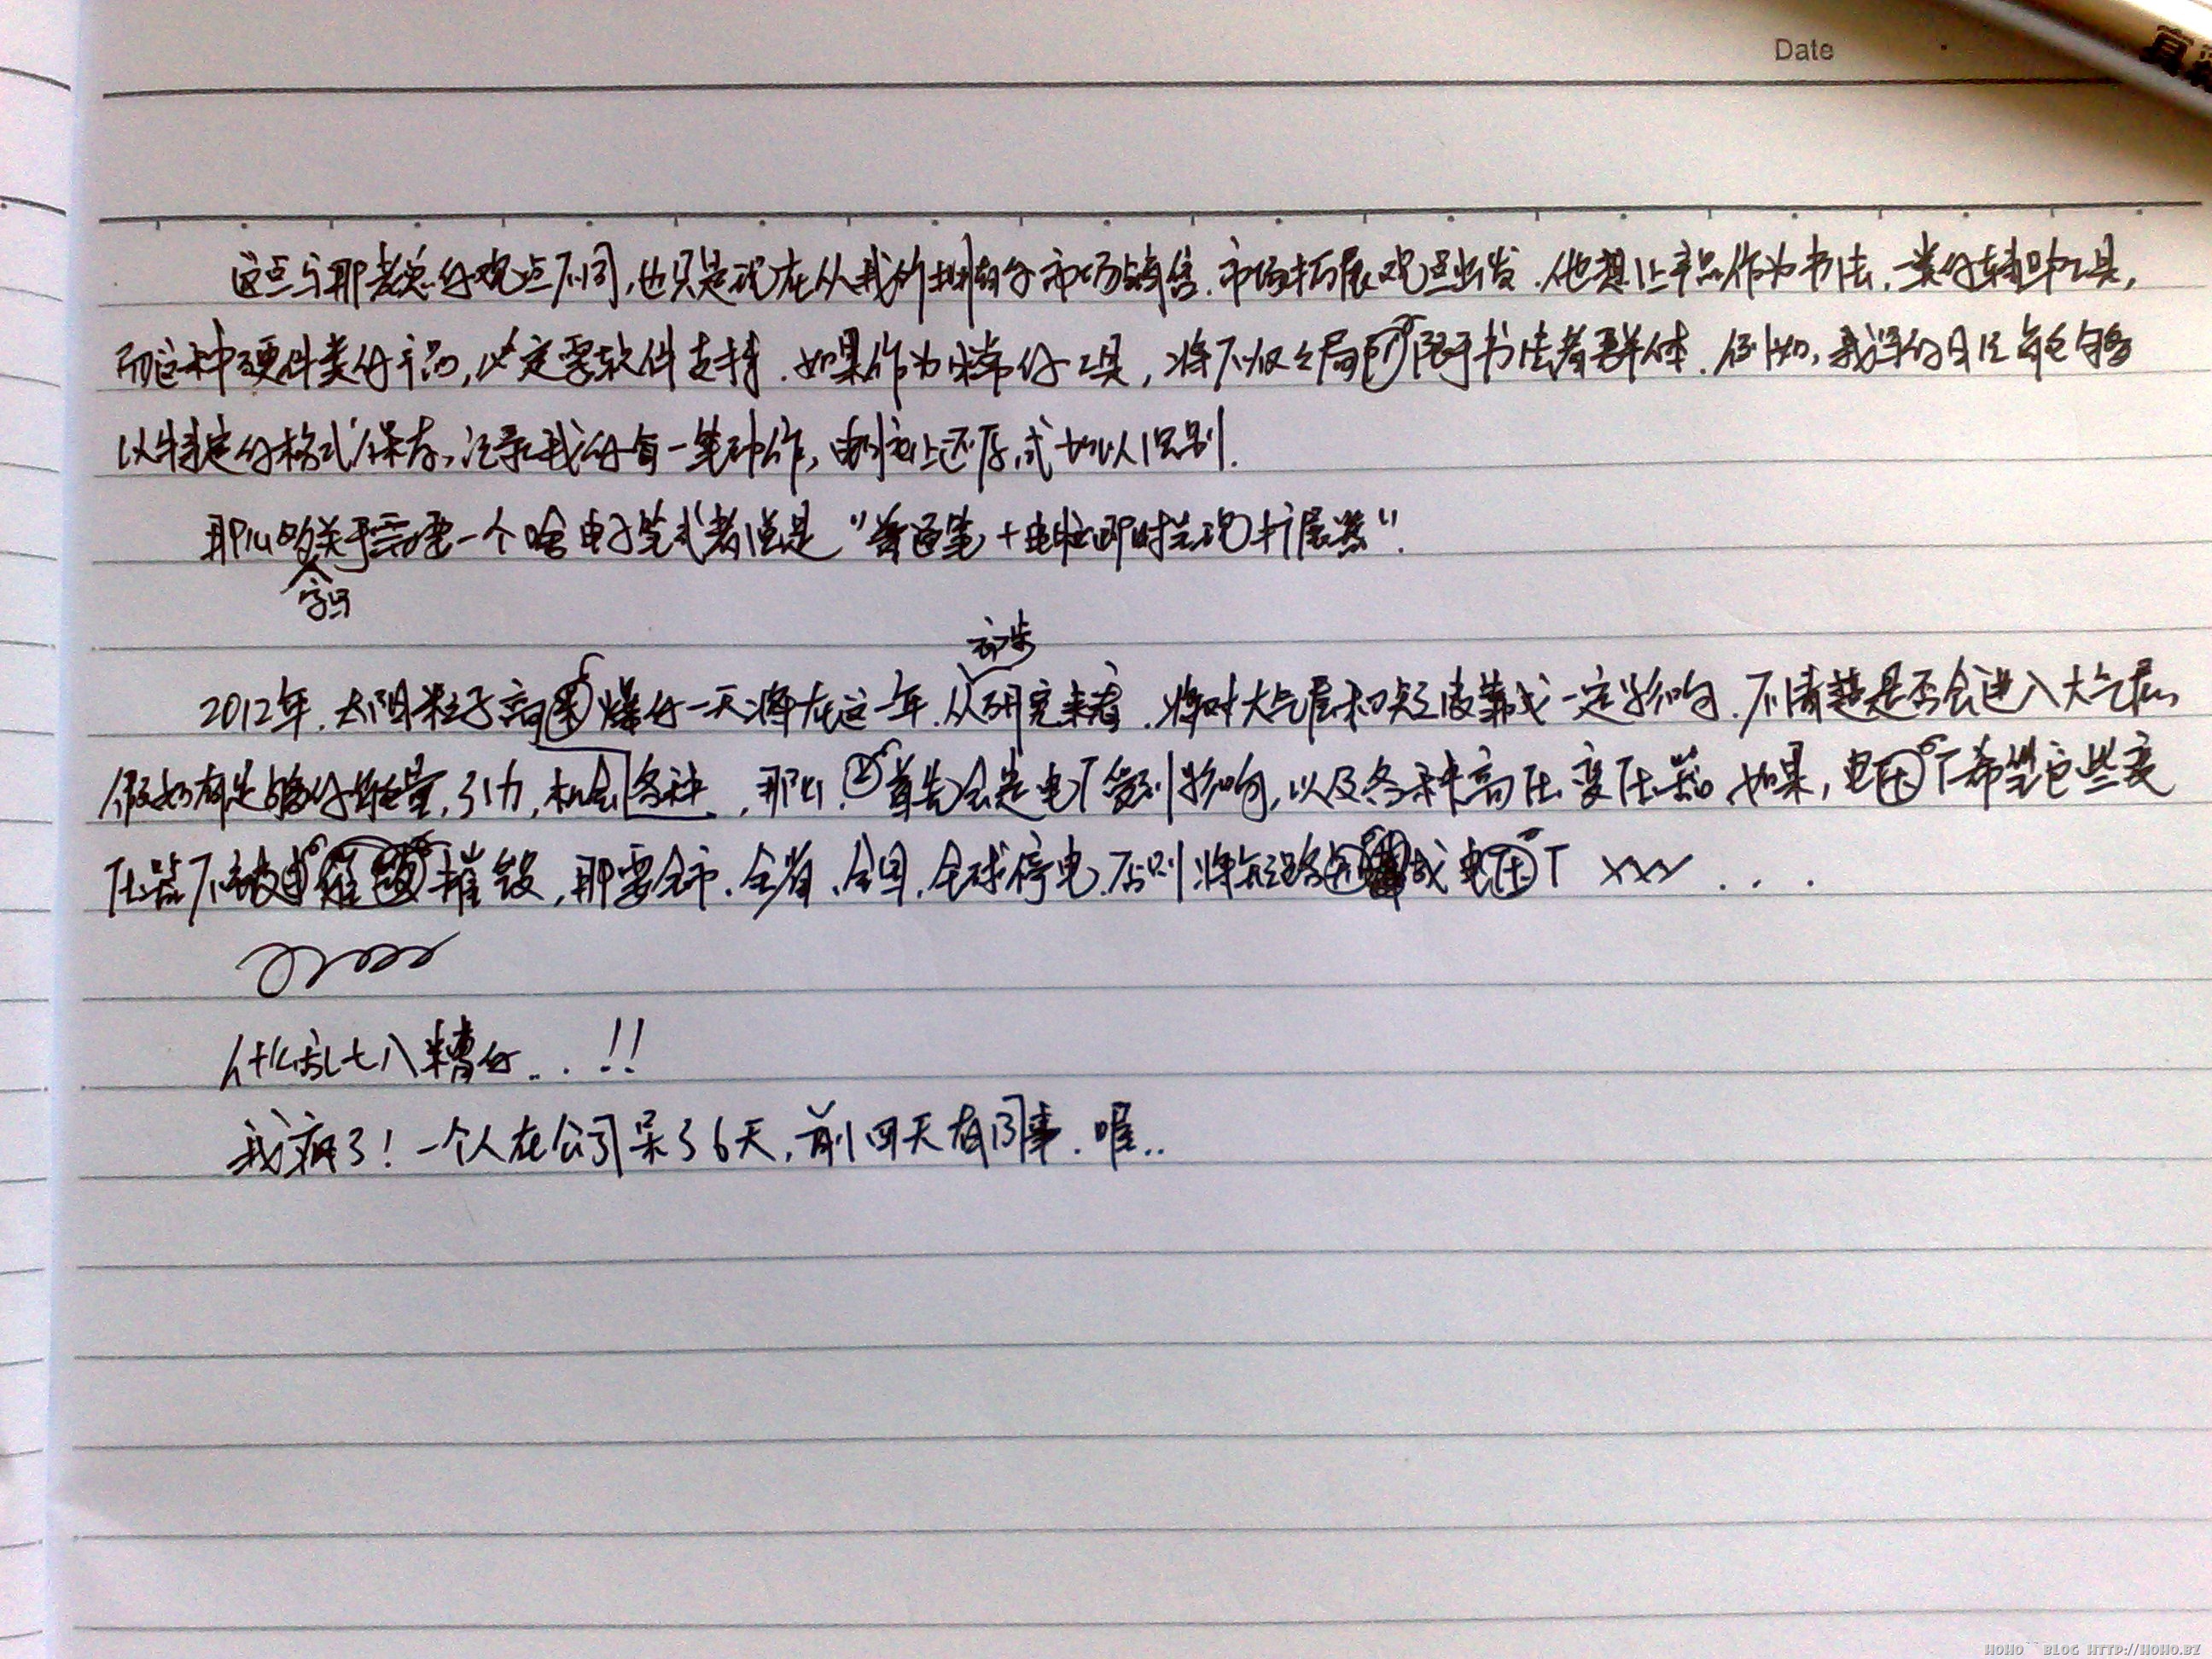 Date
这点与那老总的观点不同,也只是现在从我所拥有的市场销售.市场拓展观点出发.他想让产品作为书法.一类的辅助工具,
而这种硬件类的产品,必定需软件支持.如果作为常的工具,将不仅仅局限于书法者群体.例如,我写的日记能够
以特定的格式保存,记录我的每一笔动作,由时间上还原,或加以识别.
那么关于需要一个啥电子笔或者说是"普通笔+电脑即时呈现扩展器".
初步
2012年.太阳粒子高爆的一天将在这一年.从研究来看.将对大气层和短波造成一定影响.不清楚是否会进入大气层,
假如有足够的能量,引力,机会各种,那么.首先会是电厂受到影响,以及各种高压变压器.如果,电厂希望这些变
压器不被摧毁,那要全市.全省.全国.全球停电.否则将短路成电厂 xxx....
什么乱七八糟的...!!
我疯了!一个人在公司呆了6天,前四天有同事.喔..
HOHO BLOG HTTP://HOHO.BZ